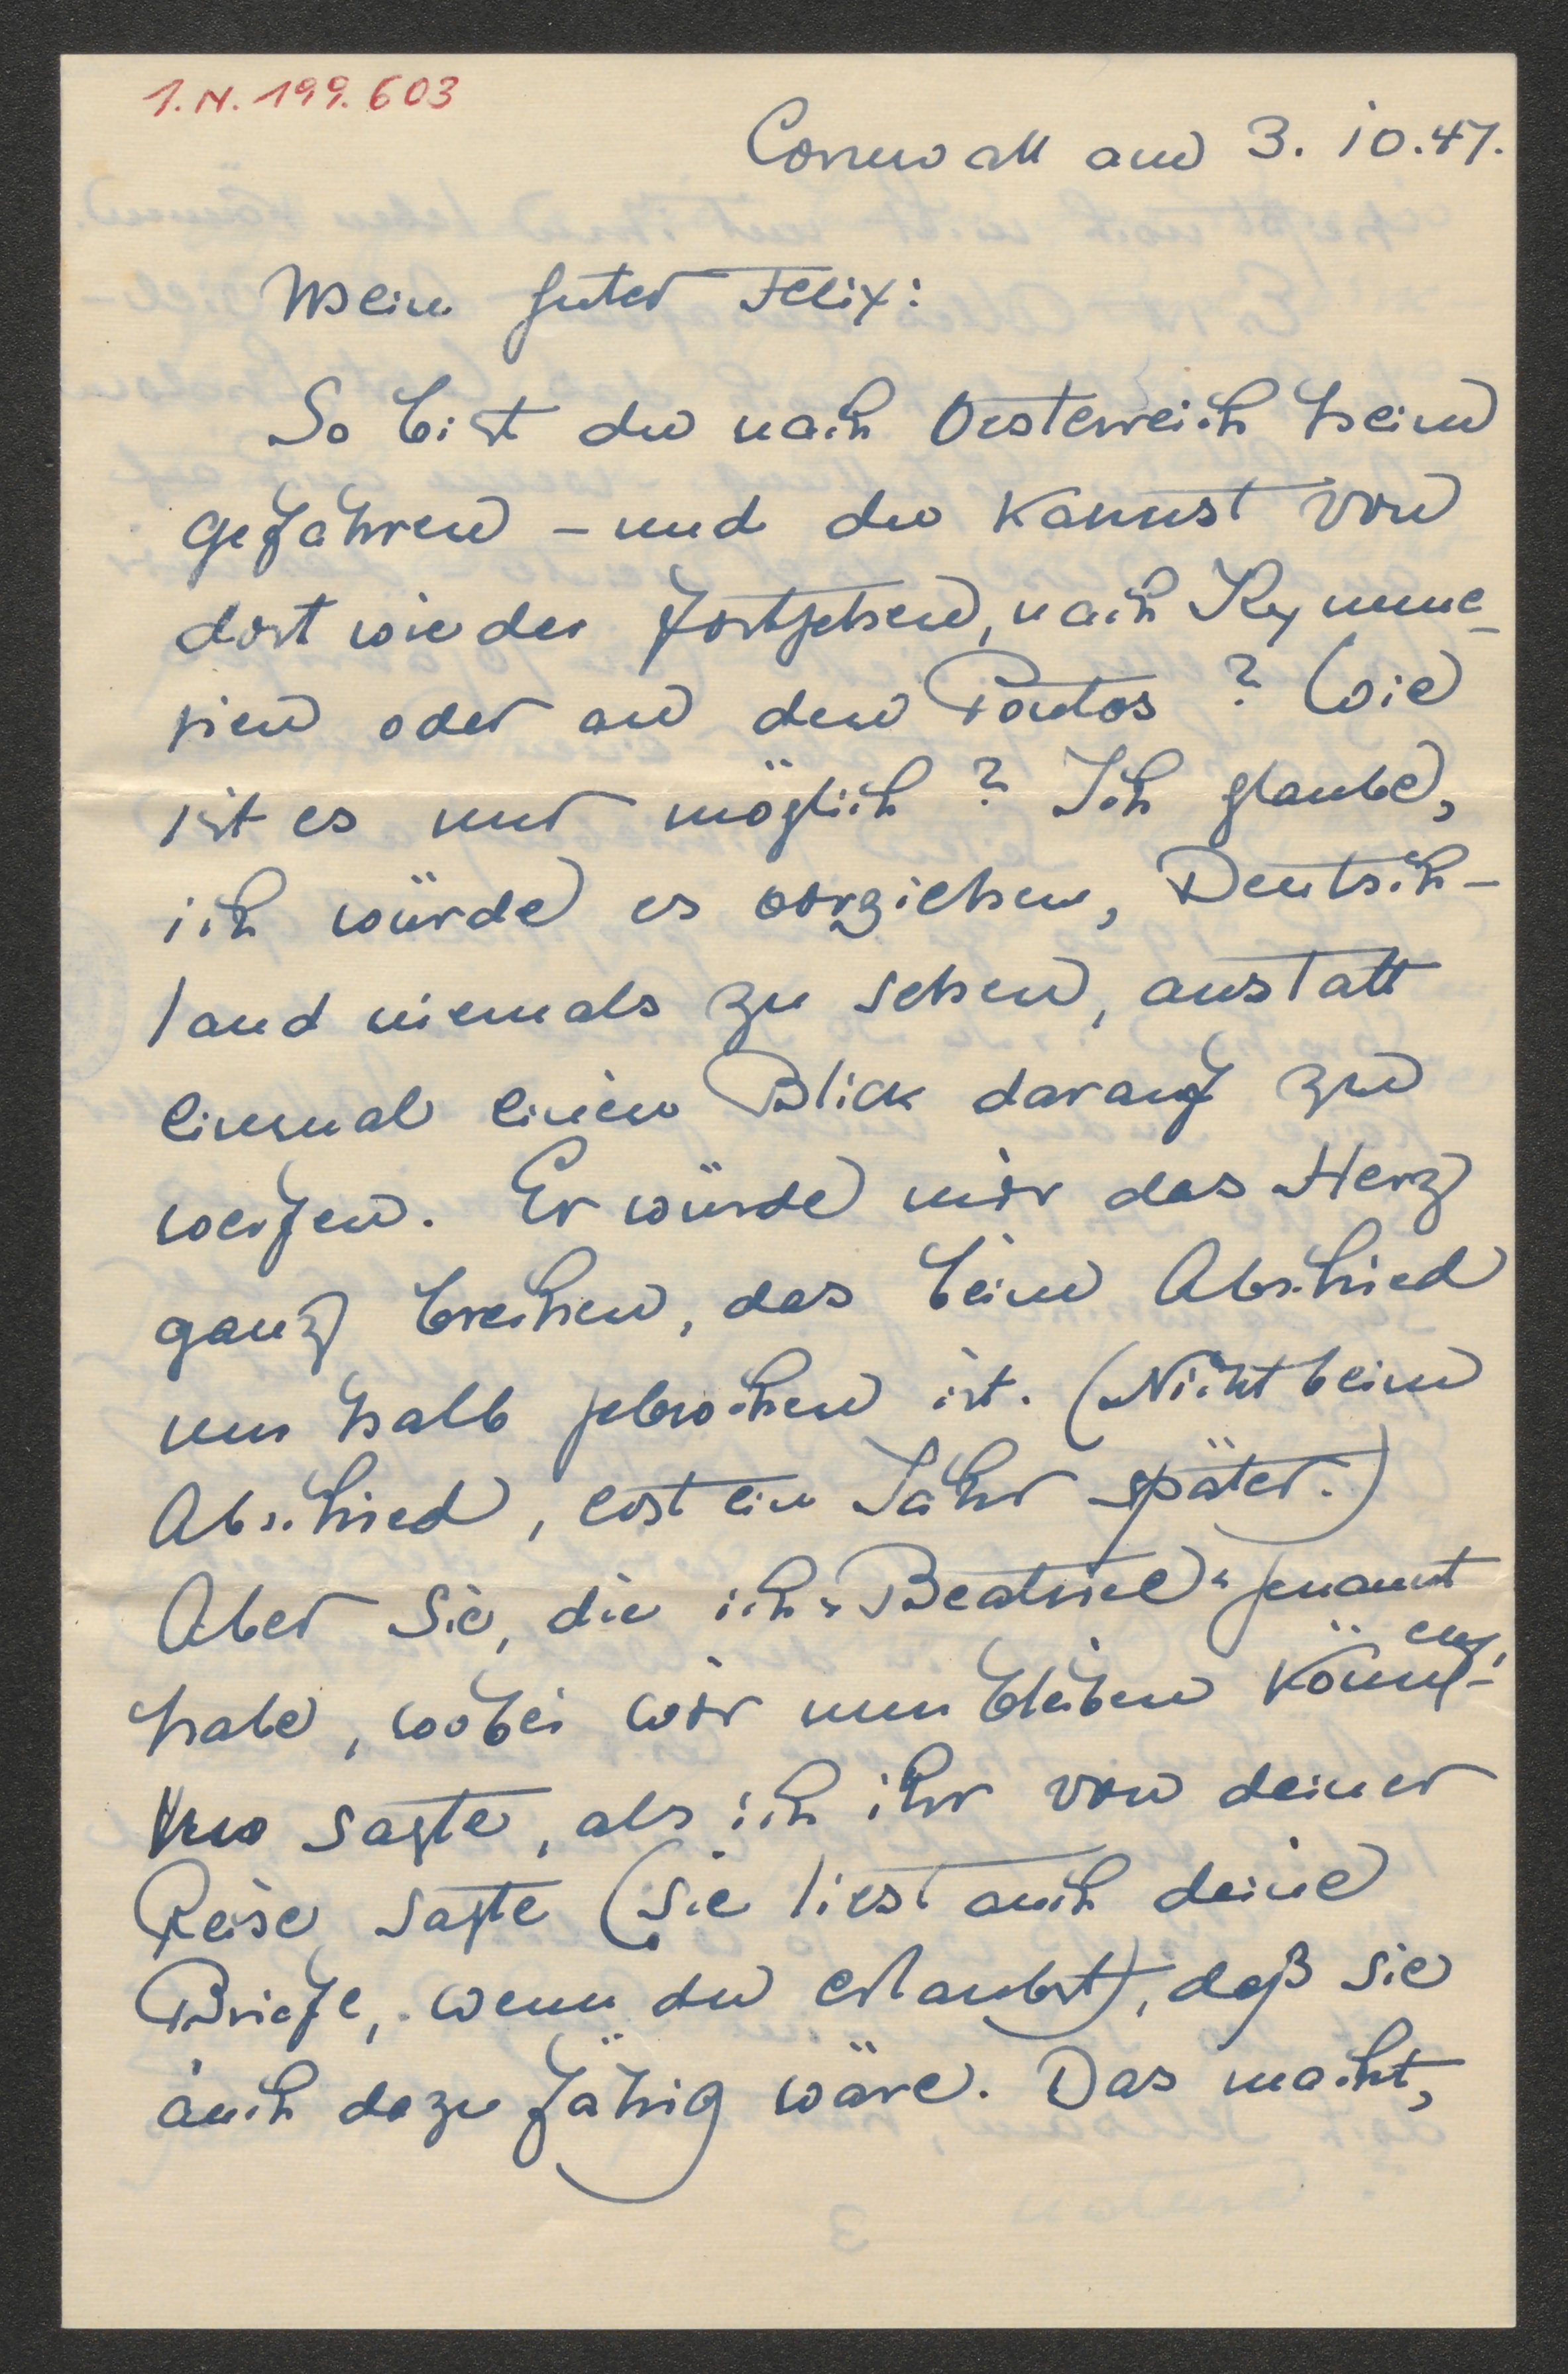 I.N. 199.603
Cornwall am 3. 10. 47.
Mein guter Felix:
So bist du nach Oesterreich heim
gefahren – und du kannst von
dort wieder fortgehen, nach Kymme-
rien oder an den Pontos? Wie
ist es nur möglich? Ich glaube,
ich würde es vorziehen, Deutsch-
land niemals zu sehen, anstatt
einmal einen Blick darauf zu
werfen. Er würde mir das Herz
ganz brechen, das beim Abschied
nur halb gebrochen ist. (Nicht beim
Abschied, erst ein Jahr später.)
Aber Sie, die ich „Beatrice“ genannt
habe, wobei wir nun bleiben können,
sagte, als ich ihr von deiner
Reise sagte (Sie liest auch deine
Briefe, wenn du erlaubst), daß sie
auch dazu fähig wäre. Das macht,